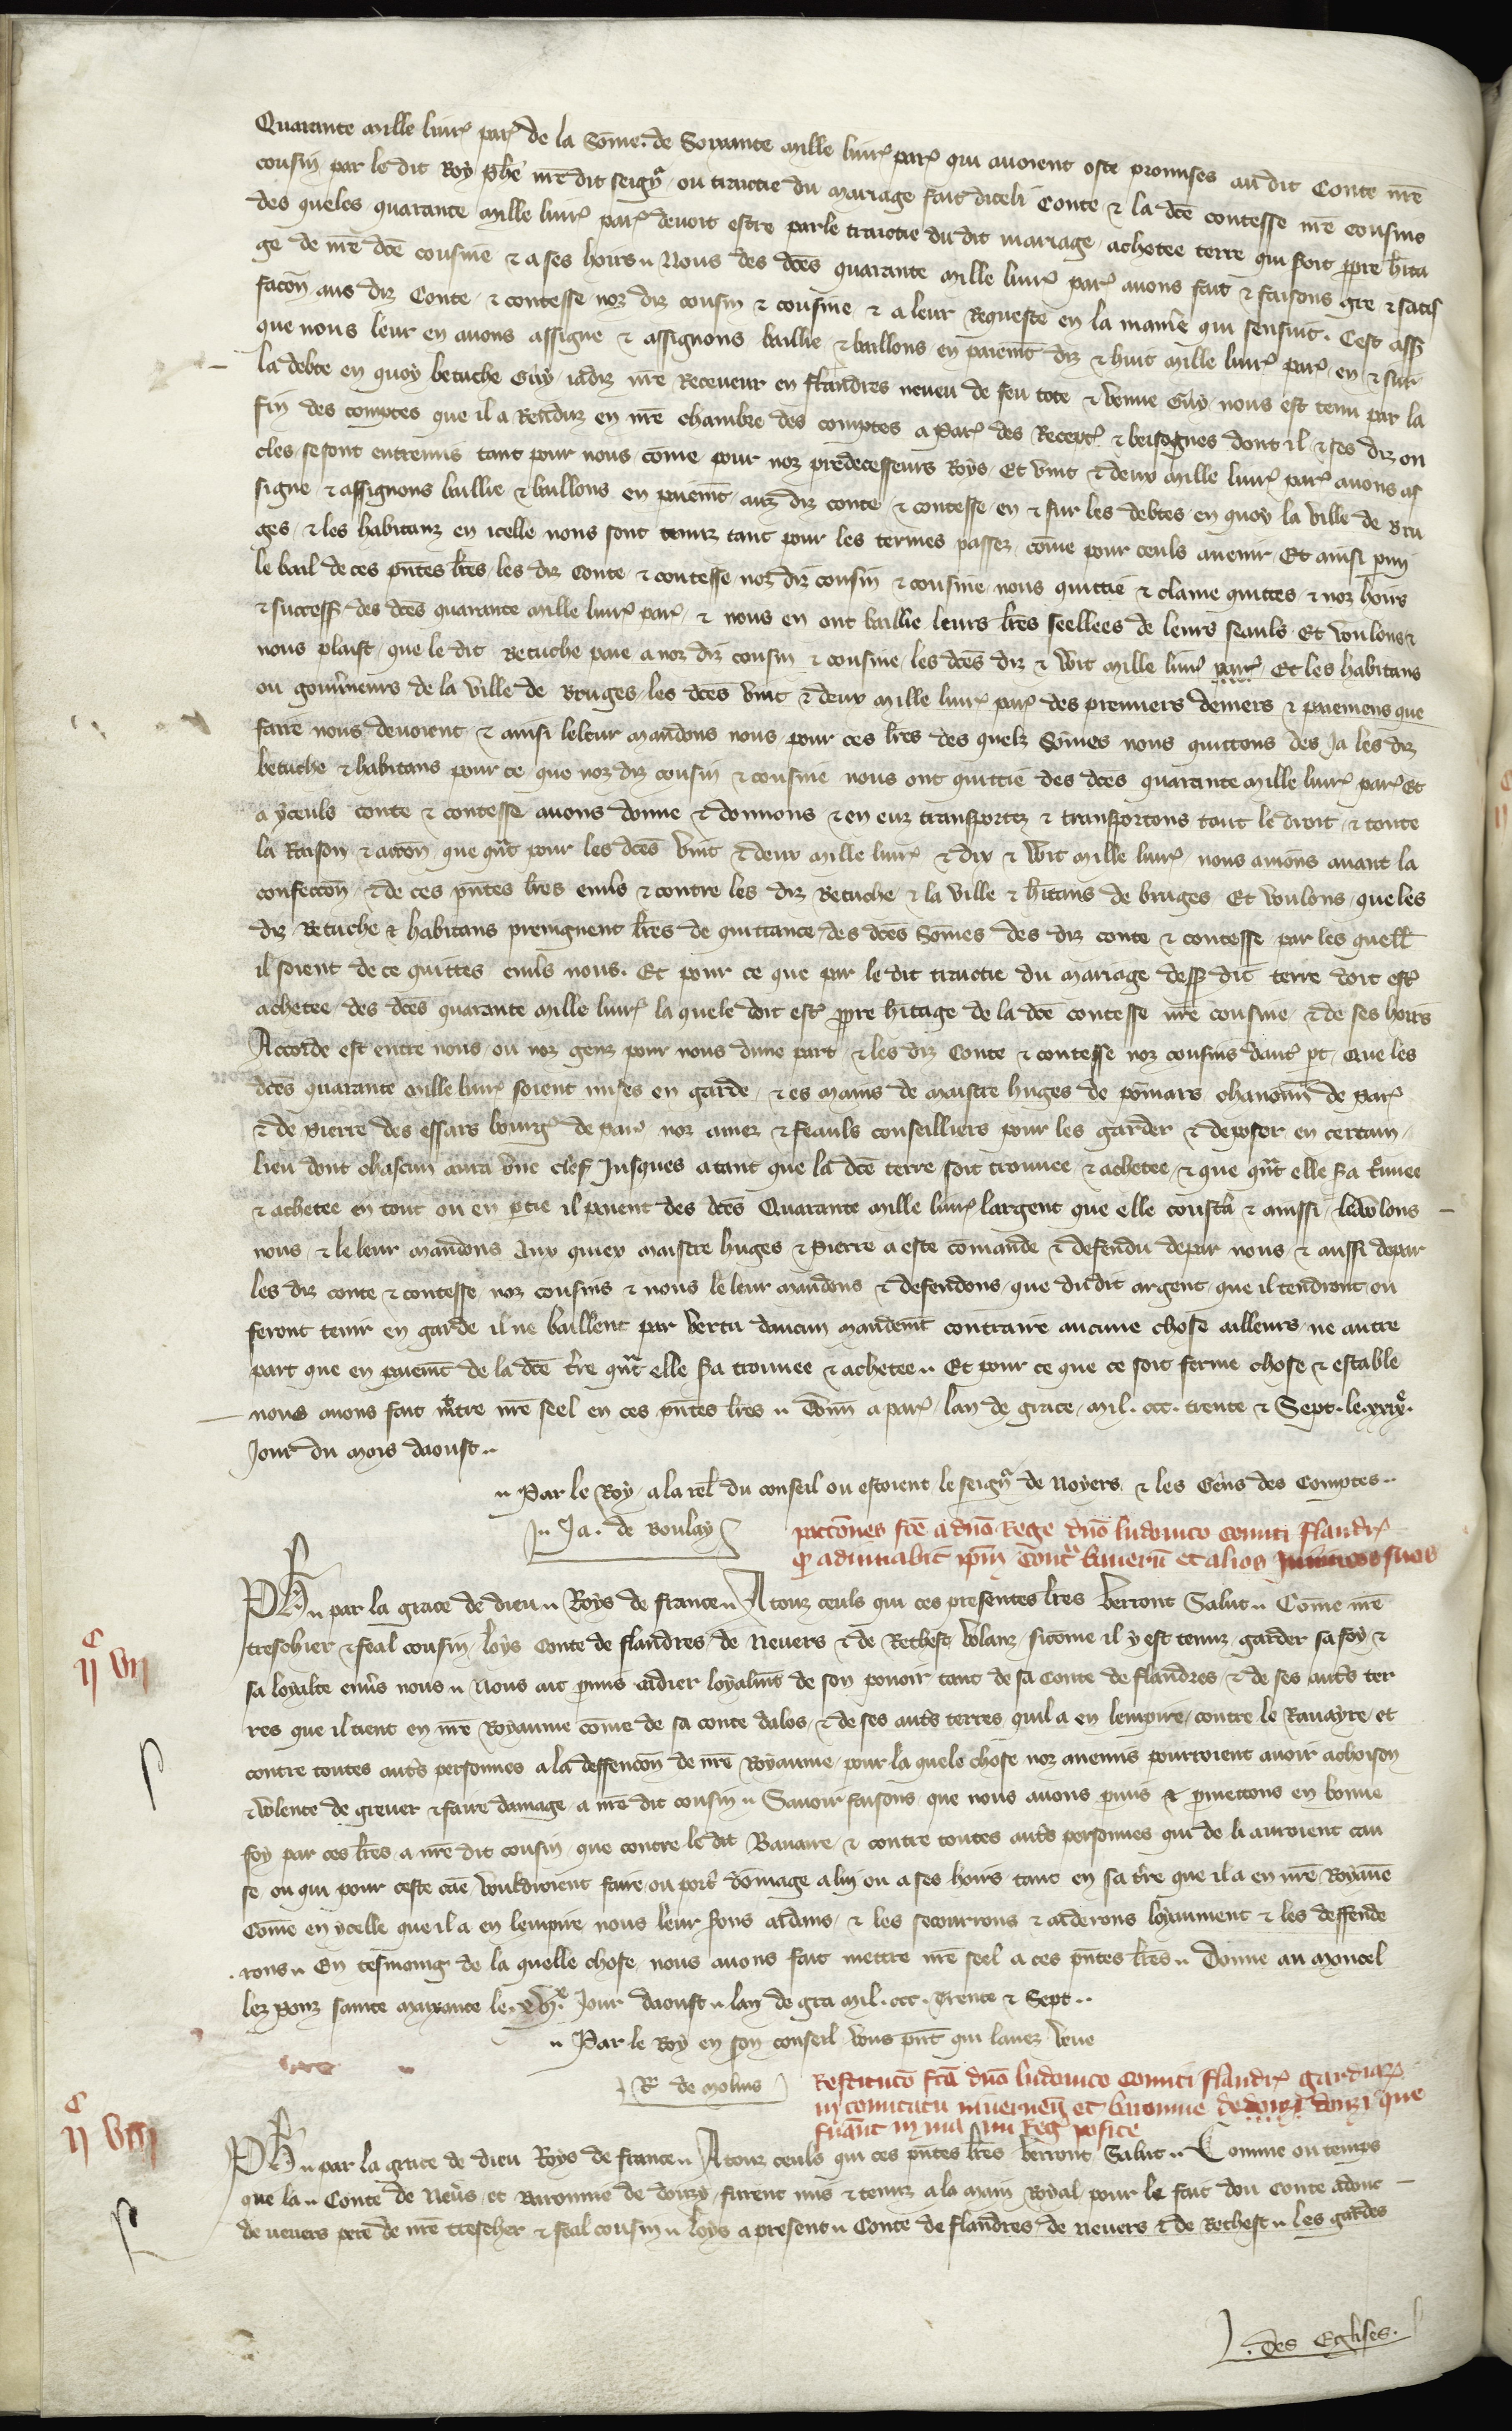 Quarante mille livr̃ par̃ de la Sõme de Soixante mille livr̃ par̃ qui avoient este promises au dit Conte nr̃e
cousin par le dit Roy Ph̃e nr̃e dit seignr̃ ou traictie du mariage fait diceli Conte & la dc̃e contesse nr̃e cousine
des queles quarante mille livr̃ par̃ devoit estre par le traictie du dit mariage achetee terre qui soit ppre h̃ita
ge de nr̃e dc̃e cousine & a ses hoirs Nous des dc̃es quarante mille livr̃ par̃ avons fait & faisons gre & satis
facõn aus diz Conte & contesse noz diz cousin & cousine & a leur Requeste en la maniẽ qui sensuit. Cest assz̃
que nous leur en avons assigne & assignons baillie & baillons en paiem̃t diz & huit mille livr̃ par̃ en & sur
la debte en quoy betuche Guy iadiz nr̃e Receveur en flandres neveu de feu tote & Vanne Guy nous est tenu par la
fin des comptes que il a Renduz en nr̃e chambre des comptes a Par̃ des Recept̃ & besoignes dont il & ses diz on
cles se sont entremis tant pour nous cõme pour noz predecesseurs Roys Et vint & deux mille livr̃ par̃ avons as
signe & assignons baillie & baillons en paiem̃t auz diz conte & contesse en & sur les debtes en quoy la ville de Bru
ges & les habitanz en icelle nous sont tenuz tant pour les termes passez cõme pour ceuls avenir Et ainsi pmi
le bail de ces pñtes lr̃es les diz Conte & contesse noz diz cousin & cousine nous quittie & clame quittes & noz hoirs
& success̃ des dc̃es quarante mille livr̃ par̃ & nous en ont baillie leurs lr̃es seellees de leurs seauls Et voulons &
nous plaist que le dit Betuche paie a noz diz cousin & cousine les dc̃es diz & Wit mille livr̃ par̃ Et les habitans
ou gouṽneurs de la ville de Bruges les dc̃es vint & deux mille livr̃ par̃ des premiers deniers & paiemens que
faire nous devoient & ainsi le leur mandons nous pour ces lr̃es des quelz Sõmes nous quittons des Ja les diz
betuche & habitans pour ce que noz diz cousin & cousine nous ont quittie des dc̃es quarante mille livr̃ par̃ Et
a yceuls conte & contesse avons donne & donnons & en euz transportez & transportons tout le droit & toute
la Raison & accõn que qñt pour les dc̃es vint & deux mille livr̃ & dix & Wit mille livr̃ nous avions avant la
confeccõn & de ces pñtes lr̃es enṽs & contre les diz Betuche & la ville & h̃itans de bruges Et voulons que les
diz Betuche & habitans preingnent lr̃es de quittance des dc̃es Sõmes des diz conte & contesse par les quell̃
il soient de ce quittes enṽs nous. Et pour ce que par le dit traictie du mariage dess̃ dit terre doit est̃
achetee des dc̃es quarante mille livr̃ la quele doit est̃ ppre h̃itage de la dc̃e contesse nr̃e cousine & de ses hoirs
Accorde est entre nous ou noz genz pour nous dune part & les diz Conte & contesse noz cousins daut̃ pt Que les
dc̃es quarante mille livr̃ soient mises en garde & es mains de maistre huges de põmars chanoinẽ de Par̃
& de Pierre des essars bourg̃ de par̃ noz amez & feauls conseilliers pour les garder & deposer en certain
lieu dont chascun aura Une clef Jusques a tant que la dc̃e terre soit trouvee & achetee & que qñt elle s̃a tr̃ouvee
& achetee en tout ou en ptie il paient des dc̃es Quarante mille livr̃ largent que elle coustera & ainssi le Volons
nous & le leur mandons Aux quiex maistre huges & Pierre a este cõmande & defendu de par nous & aussi de par
les diz conte & contesse noz cousins & nous le leur mandons & defendons que du dit argent que il tendront ou
feront tenir en garde il ne baillent par vertu daucun mandem̃t contraire aucune chose ailleurs ne autre
part que en paiem̃t de la dc̃e t̃re qñt elle s̃a trouvee & achetee Et pour ce que ce soit ferme chose & estable
nous avons fait mettre nr̃e seel en ces pñtes lr̃es Donñ a par̃ lan de grace mil. ccc. trente & Sept. le. xxix̃e.
Jour du mois daoust
Par le Roy a la rel̃ du conseil ou estoient le seignr̃ de Noyers & les Gens des Comptes
Ja. de Boulay
pacciones fc̃e a dño Rege dño ludovico comiti flandr̃
q̃ adiuvabit ip̃m cont̃ bavarũ et alios inimicos suos
Ph̃ par la grace de dieu Roys de france A touz ceuls qui ces presentes lr̃es verront Salut Cõme nr̃e
treschier & feal cousin loys Conte de flandres de Nevers & de Rethest Volanz sicõme il y est tenuz garder sa foy &
sa loyalte enṽs nous Nous ait pmis aidier loyalm̃t de son povoir tant de sa Conte de flandres & de ses autr̃s ter
res que il tient en nr̃e Royaume cõme de sa conte dalos & de ses autr̃s terres quil a en lempire contre le Bavayre et
contre toutes autr̃s personnes a la deffencõn de nr̃e Royaume pour la quele chose noz anemis pourroient avoir achoison
& volente de grever & faire damage a nr̃e dit cousin Savoir faisons que nous avons pmis & pmettons en bonne
foy par ces lr̃es a nr̃e dit cousin que contre le dit Bavaire & contre toutes autr̃s personnes qui de li auroient cau
se ou qui pour ceste cãe vouldroient faire ou port̃ dõmage a lui ou a ses hoirs tant en sa t̃re que il a en nr̃e Royaũe
Cõme en ycelle que il a en lempire nous leur s̃ons aidans & les secourrons & aiderons loyaument & les deffende
rons En tesmoing de la quelle chose nous avons fait mettre nr̃e seel a ces pñtes lr̃es Donne au Moncel
lez Ponz sainte maxance le. xvi̇e Jour daoust lan de gra mil. ccc. Trente & Sept
Par le Roy en son conseil vous pñt qui lavez veue
R. de molins
Restitucõ fcã dño ludovico comiti flandr̃ gardiar̃
in comitatu nivernen̄ et baronnie de donzi que
fuer̃ant in manu Reg̃ posite
cͨ
ij vij
cͨ
ij viij
Ph̃ par la grace de dieu Roys de france A touz ceuls qui ces pñtes lr̃es verront Salut Comme ou temps
que la Conte de Neṽs et Baronnie de donzy furent mis & tenuz a la main Royal pour le fait dou conte adonc
de nevers pere de nr̃e trescher & feal cousin loys a present Conte de flandres de nevers & de Rethest les gardes
des Eglises.